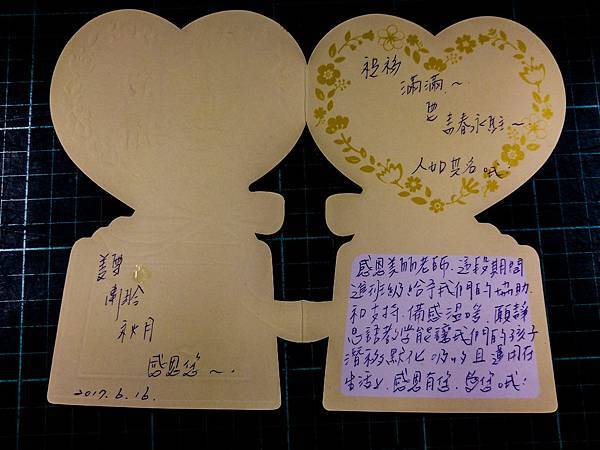 祝福
滿滿~
也
青春永駐~
人如其名哦
感恩美丽老師.這段期間
進班級給予我們的協助
和支持.備感溫馨.願靜
思語教學能讓我們的孩子
潛移默化 吸收且運用在
生活上.感恩有您.愛您哦!
美惠
秋月
感恩您~.
2017.6.16.